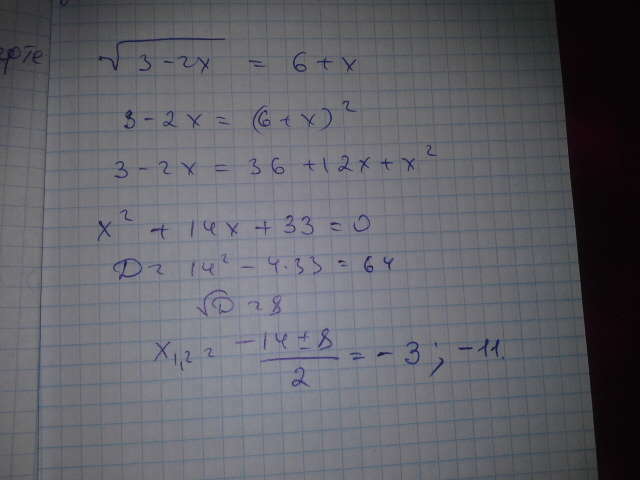 √3-2x = 6+x
3-2x = (6+x)²
3-2x = 36+12x+x²
x²+14x+33=0
D= 14²-4·33=64
√D=8
x₁,₂= (-14±8)/2 = -3; -11.